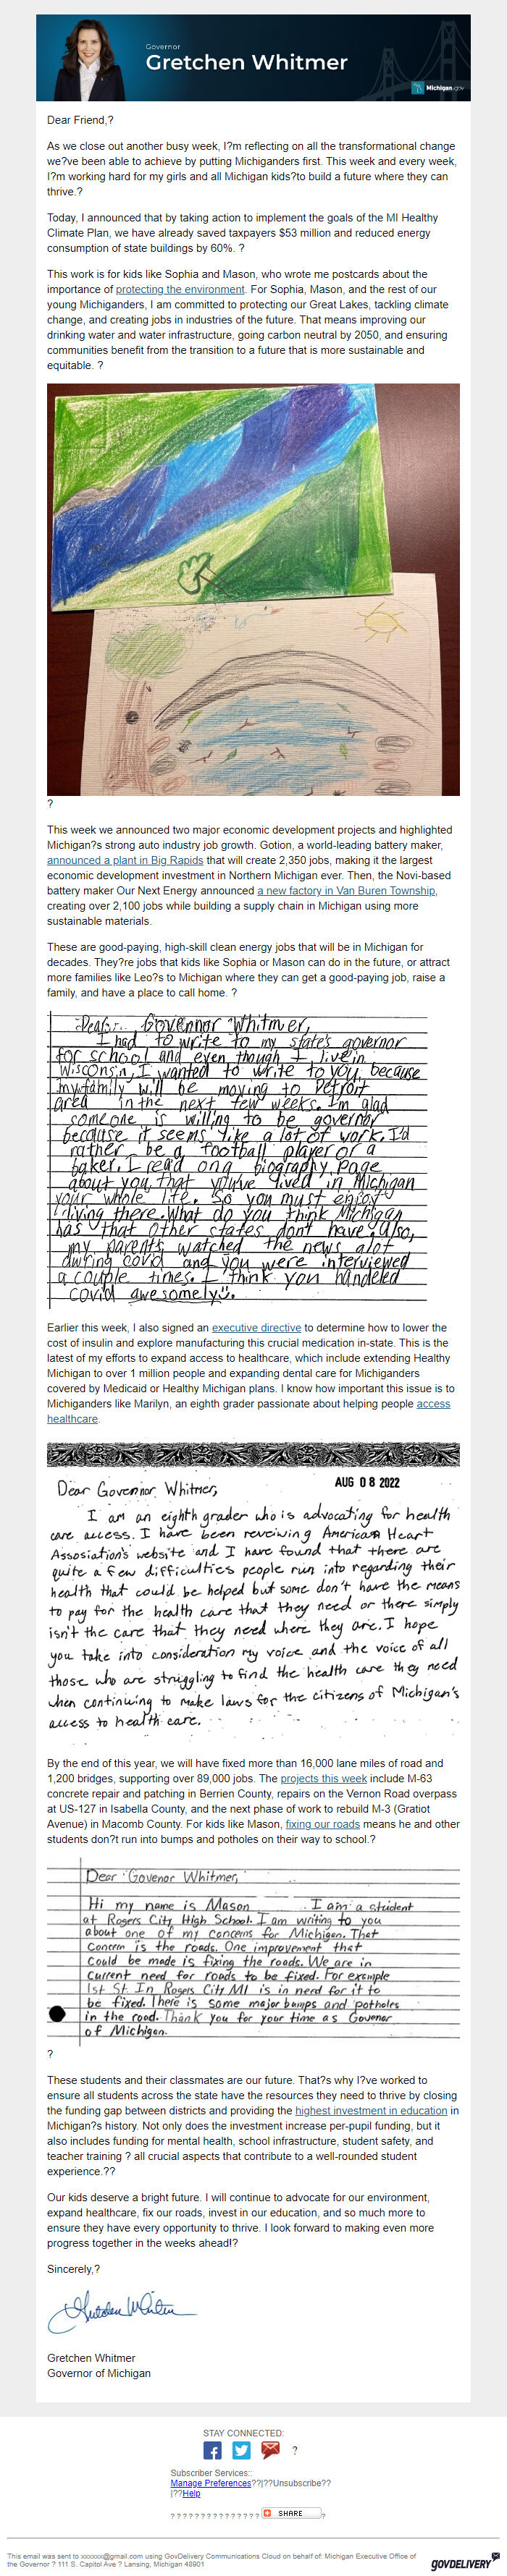 Governor
Gretchen Whitmer
Michigan.gov
Dear Friend,?
As we close out another busy week, I?m reflecting on all the transformational change
we?ve been able to achieve by putting Michiganders first. This week and every week,
I?m working hard for my girls and all Michigan kids?to build a future where they can
thrive.?
Today, I announced that by taking action to implement the goals of the MI Healthy
Climate Plan, we have already saved taxpayers $53 million and reduced energy
consumption of state buildings by 60%. ?
This work is for kids like Sophia and Mason, who wrote me postcards about the
importance of protecting the environment. For Sophia, Mason, and the rest of our
young Michiganders, I am committed to protecting our Great Lakes, tackling climate
change, and creating jobs in industries of the future. That means improving our
drinking water and water infrastructure, going carbon neutral by 2050, and ensuring
communities benefit from the transition to a future that is more sustainable and
equitable. ?
?
This week we announced two major economic development projects and highlighted
Michigan?s strong auto industry job growth. Gotion, a world-leading battery maker,
announced a plant in Big Rapids that will create 2,350 jobs, making it the largest
economic development investment in Northern Michigan ever. Then, the Novi-based
battery maker Our Next Energy announced a new factory in Van Buren Township,
creating over 2,100 jobs while building a supply chain in Michigan using more
sustainable materials.
These are good-paying, high-skill clean energy jobs that will be in Michigan for
decades. They?re jobs that kids like Sophia or Mason can do in the future, or attract
more families like Leo?s to Michigan where they can get a good-paying job, raise a
family, and have a place to call home. ?
Dear Govennor Whitmer,
I had to write to my state's governor
for school and even though I live in
Wisconsin, I wanted to write to you, because
my family will be moving to Detroit
area in the next few weeks. I'm glad
someone is willing to be governor
because it seems like a lot of work. I'd
rather be a football player or a
baker. I read on a biography page
about you, that you've lived in Michigan
your whole life. So you must enjoy
living there. What do you think Michigan
has that other states dont have? also,
my parents watched the news alot
during covid and you were interviewed
a couple times. I think you handeled
covid awesomely☺.
Earlier this week, I also signed an executive directive to determine how to lower the
cost of insulin and explore manufacturing this crucial medication in-state. This is the
latest of my efforts to expand access to healthcare, which include extending Healthy
Michigan to over 1 million people and expanding dental care for Michiganders
covered by Medicaid or Healthy Michigan plans. I know how important this issue is to
Michiganders like Marilyn, an eighth grader passionate about helping people access
healthcare.
AUG 08 2022
Dear Governor Whitmer,
I am an eighth grader who is advocating for health
care access. I have been reveiwing American Heart
Assosiation's website and I have found that there are
quite a few difficulties people run into regarding their
health that could be helped but some don't have the means
to pay for the health care that they need or there simply
isn't the care that they need where they are. I hope
you take into consideration my voice and the voice of all
those who are struggling to find the health care they need
when continuing to make laws for the citizens of Michigan's
access to health care.
By the end of this year, we will have fixed more than 16,000 lane miles of road and
1,200 bridges, supporting over 89,000 jobs. The projects this week include M-63
concrete repair and patching in Berrien County, repairs on the Vernon Road overpass
at US-127 in Isabella County, and the next phase of work to rebuild M-3 (Gratiot
Avenue) in Macomb County. For kids like Mason, fixing our roads means he and other
students don?t run into bumps and potholes on their way to school.?
Dear Govenor Whitmer,
Hi my name is Mason I am a student
at Rogers City High School. I am writing to you
about one of my concerns for Michigan. That
Concern is the roads. One improvement that
could be made is fixing the roads. We are in
current need for roads to be fixed. For example
1st St. In Rogers City MI is in need for it to
be fixed. There is some major bumps and potholes
in the road. Thank you for your time as Govenor
of Michigan.
?
These students and their classmates are our future. That?s why I?ve worked to
ensure all students across the state have the resources they need to thrive by closing
the funding gap between districts and providing the highest investment in education in
Michigan?s history. Not only does the investment increase per-pupil funding, but it
also includes funding for mental health, school infrastructure, student safety, and
teacher training ? all crucial aspects that contribute to a well-rounded student
experience.??
Our kids deserve a bright future. I will continue to advocate for our environment,
expand healthcare, fix our roads, invest in our education, and so much more to
ensure they have every opportunity to thrive. I look forward to making even more
progress together in the weeks ahead!?
Sincerely,?
Gretchen Whitmer
Gretchen Whitmer
Governor of Michigan
STAY CONNECTED:
?
Subscriber Services::
Manage Preferences??|??Unsubscribe??
|??Help
? ? ? ? ? ? ? ? ? ? ? ? ? ? ? SHARE ?
This email was sent to xxxxxxx@gmail.com using GovDelivery Communications Cloud on behalf of: Michigan Executive Office of
the Governor ? 111 S. Capitol Ave ? Lansing, Michigan 48901
GOVDELIVERY